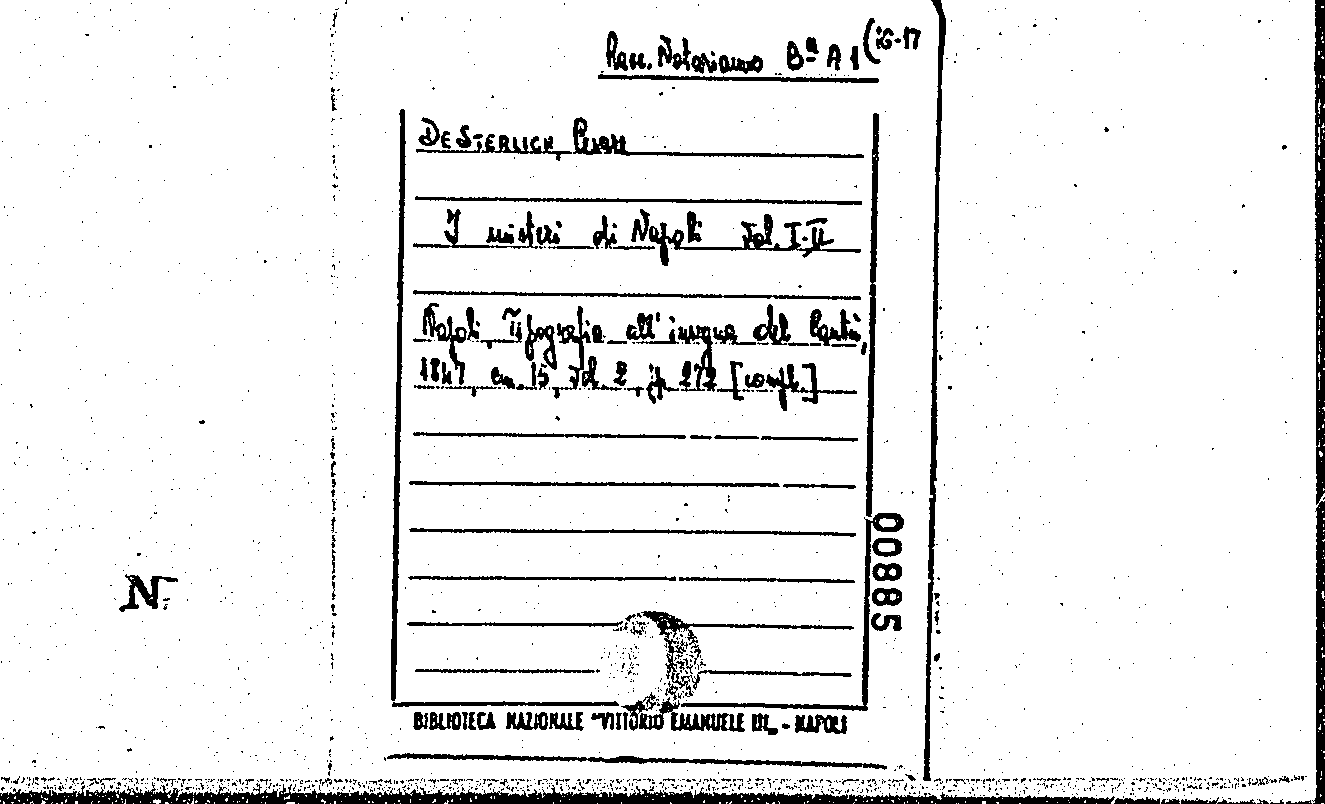 Racc. Notarianno Bª A 1 (16-17
DE STERLICH, Cesare
I misteri di Napoli Vol. I-II
Napoli, Tipografia all'insegna del Cantù,
1847, cm. 15, vol. 2, p. 272 [compl.]
00885
N.
BIBLIOTECA NAZIONALE "VITTORIO EMANUELE III„ - NAPOLI